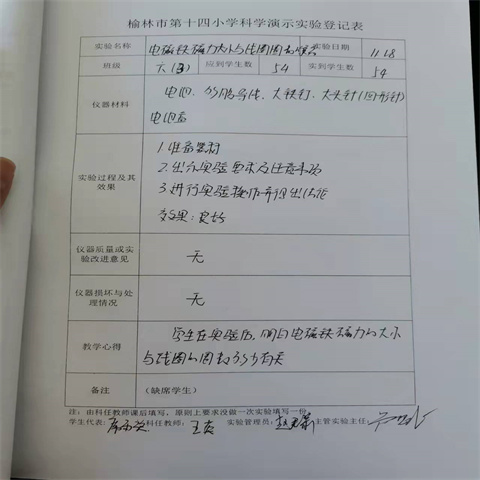 榆林市第十四小学科学演示实验登记表
实验名称 电磁铁磁力大小与线圈圈数 实验日期 11.18
班级 六(3) 应到学生数 54 实到学生数 54
仪器材料 电池、外服导线、大铁钉、大头针(回形针)
电池盒
实验过程及其效果
1.准备器材
2.出示实验要求及注意事项
3.进行实验操作并得出结论
效果:良好
仪器质量或实验改进意见 无
仪器损坏与处理情况 无
教学心得 学生在实验后,明白电磁铁磁力的大小
与线圈的圈数多少有关
备注 (缺席学生)
注:由科任教师课后填写,原则上要求没做一次实验填写一份
学生代表: 科任教师: 实验管理员: 主管实验主任: